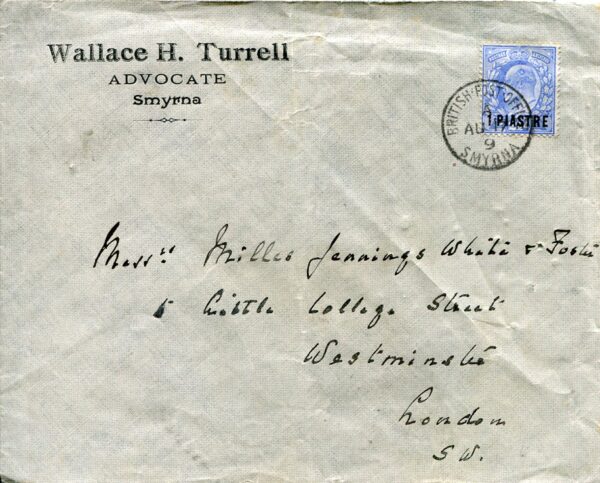 Wallace H. Turrell
ADVOCATE
Smyrna
1 PIASTRE
BRITISH POST OFFICE
A
AU
9
SMYRNA
Messrs Milles Jennings White & Foster
5 Little College Street
Westminster
London
S.W.